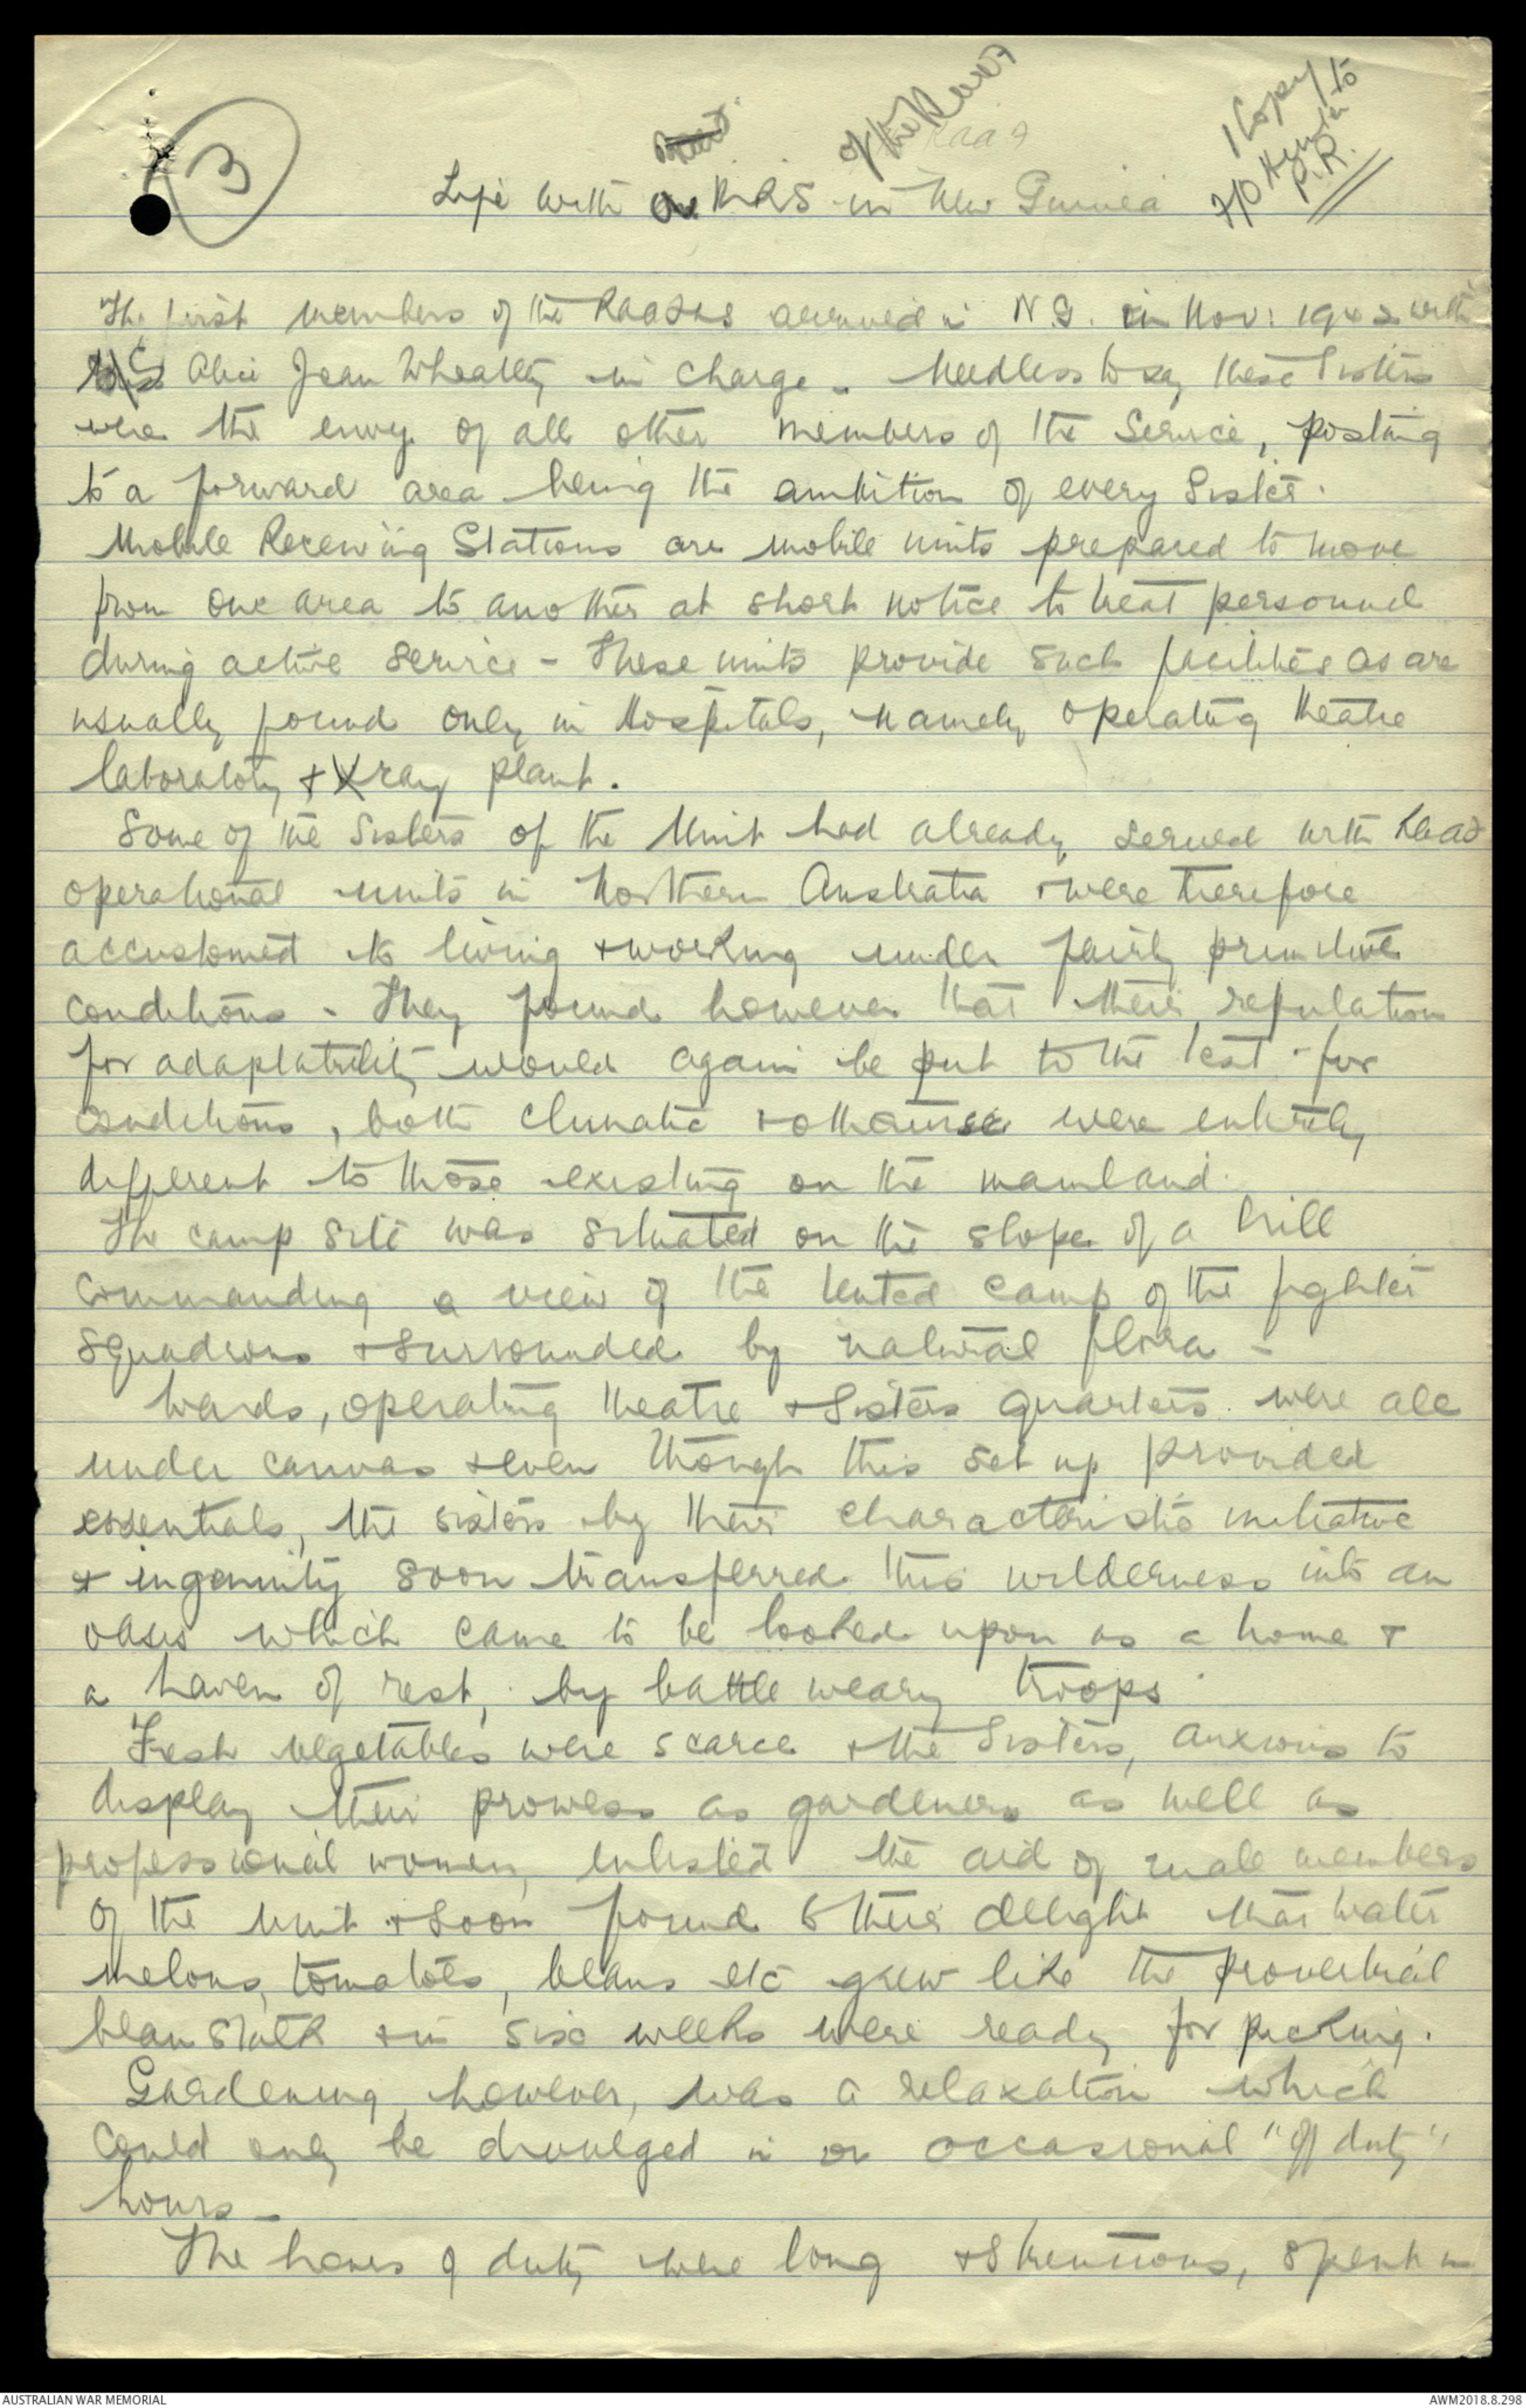 3
of the RAAF
Raaf
1 Copy to
F/O
P.R.
Life with an MRS in New Guinea
The first members of the RAAFNS arrived in N.G. in Nov: 1942 with
Alice Jean Wheatley in charge. Needless to say these Sisters
were the envy of all other members of the Service, posting
to a forward area being the ambition of every Sister.
Mobile Receiving Stations are mobile units prepared to move
from one area to another at short notice to treat personnel
during active service - These units provide such facilities as are
usually found only in Hospitals, namely operating theatre
laboratory + Xray plant.
Some of the Sisters of the Unit had already served with RAAF
operational units in Northern Australia + were therefore
accustomed to living + working under fairly primitive
conditions - They found however that their reputation
for adaptability would again be put to the test - for
conditions, both climatic + otherwise were entirely
different to those existing on the mainland.
The camp site was situated on the slope of a hill
commanding a view of the tented camp of the fighter
squadrons + surrounded by natural flora -
Wards, operating theatre + Sisters quarters were all
under canvas + even though this set up provided
essentials, the sisters by their characteristic initiative
+ ingenuity soon transferred this wilderness into an
oasis which came to be looked upon as a home +
a haven of rest, by battle weary troops.
Fresh vegetables were scarce + the Sisters, anxious to
display their prowess as gardeners as well as
professional women, enlisted the aid of male members
of the Unit + soon found to their delight that water
melons, tomatoes, beans etc grew like the proverbial
bean stalk + in six weeks were ready for picking.
Gardening, however, was a relaxation which
could only be divulged in on occasional "off duty"
hours -
The hours of duty were long + strenuous, spent in
AUSTRALIAN WAR MEMORIAL
AWM2018.8.298